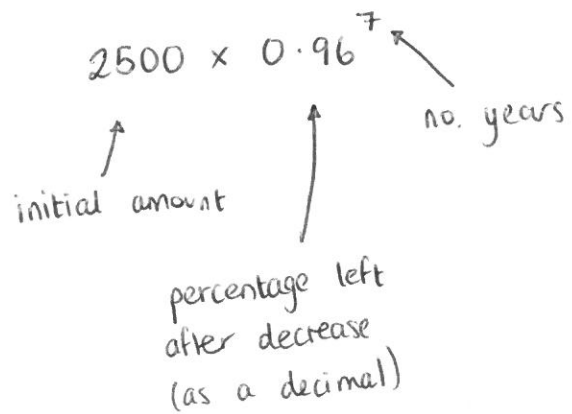 2500 × 0.96⁷
no. years
initial amount
percentage left
after decrease
(as a decimal)